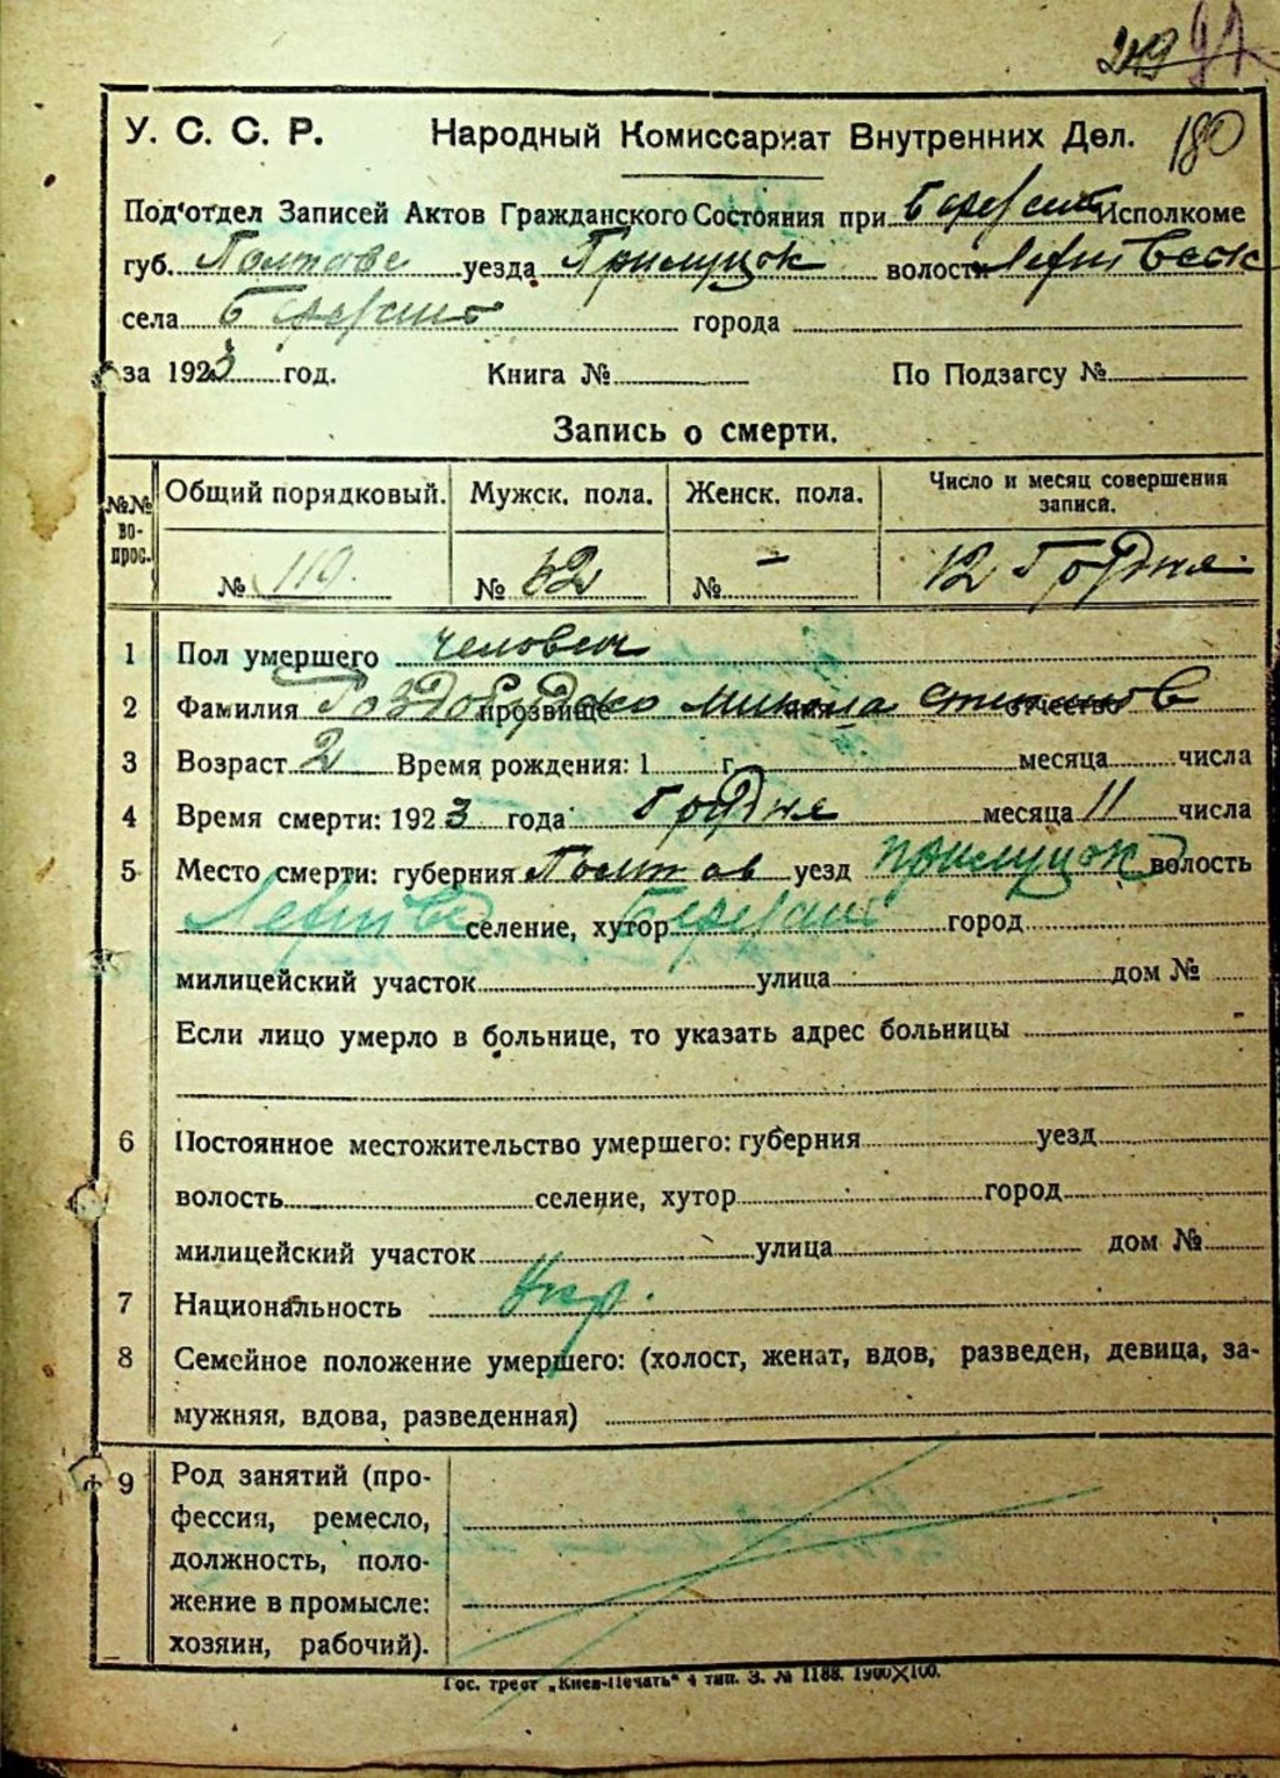 249 97
У. С. С. Р. Народный Комиссариат Внутренних Дел. 180
Под'отдел Записей Актов Гражданского Состояния при Исполкоме
губ. Полтове уезда Прилуцок волости
села города
за 1923 год. Книга № По Подзагсу №
Запись о смерти.
№№ во-прос. Общий порядковый. Мужск. пола. Женск. пола. Число и месяц совершения записи.
№ 110. № 62 № — 12 Грудня
1 Пол умершего человеч
2 Фамилия прозвище Микола имя отчество
3 Возраст 2 Время рождения: 1 г. месяца числа
4 Время смерти: 1923 года Грудня месяца 11 числа
5 Место смерти: губерния Полтав уезд Прилуцок волость
селение, хутор город
милицейский участок улица дом №
Если лицо умерло в больнице, то указать адрес больницы
6 Постоянное местожительство умершего: губерния уезд
волость селение, хутор город
милицейский участок улица дом №
7 Национальность Укр.
8 Семейное положение умершего: (холост, женат, вдов, разведен, девица, за-
мужняя, вдова, разведенная)
9 Род занятий (про-
фессия, ремесло,
должность, поло-
жение в промысле:
хозяин, рабочий).
Гос. трест „Киев-Печать“ 4 тип. З. № 1188. 1900×100.